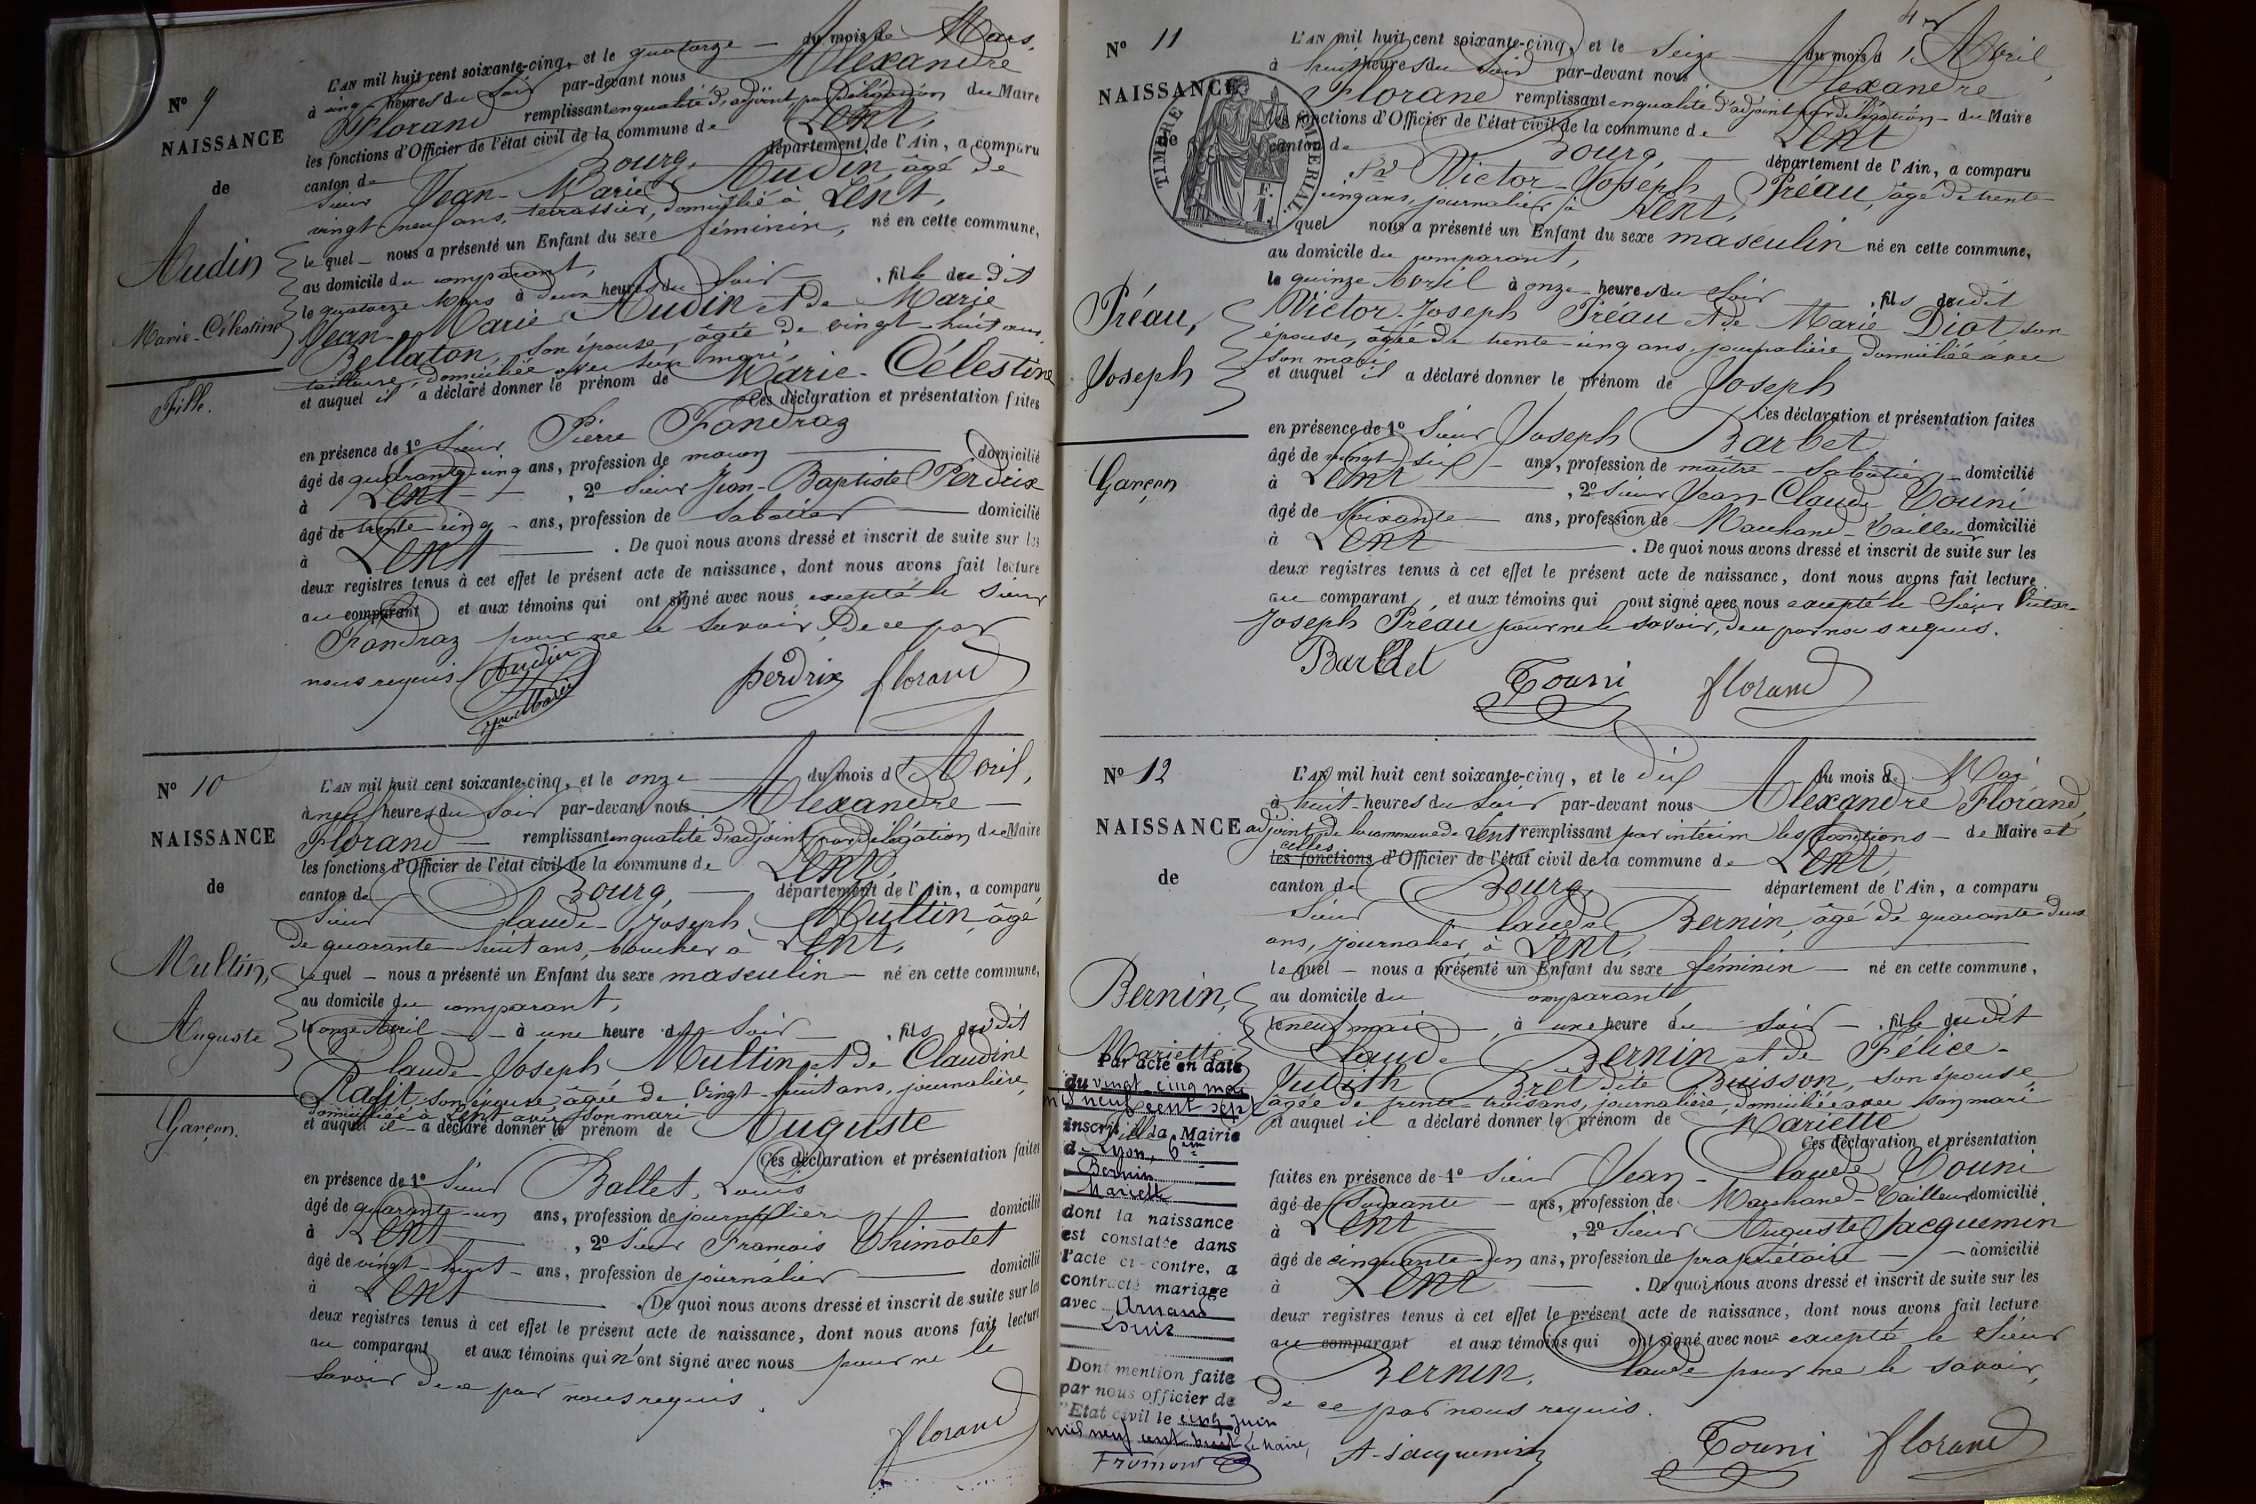 N° 9
NAISSANCE
de
Audin
Marie-Célestine
Fille.
L'AN mil huit cent soixante-cinq, et le quatorze du mois de Mars,
à cinq heures du soir par-devant nous Alexandre
Florand remplissant en qualité d'adjoint, par délégation du Maire
les fonctions d'Officier de l'état civil de la commune de Lent,
canton de Bourg, département de l'Ain, a comparu
Sieur Jean-Marie Audin âgé de
vingt neuf ans, terrassier, domicilié à Lent,
le quel nous a présenté un Enfant du sexe féminin, né en cette commune,
au domicile du comparant,
le quatorze Mars à deux heures du soir, fille du dit
Jean-Marie Audin et de Marie
Bellaton, son épouse, âgée de vingt-huit ans,
tailleuse, domiciliée avec son mari,
et auquel il a déclaré donner le prénom de Marie-Célestine
Ces déclaration et présentation faites
en présence de 1° Sieur Pierre Fandraz
âgé de quarante-cinq ans, profession de maçon domicilié
à Lent, 2° Sieur Jean-Baptiste Perdrix
âgé de trente-cinq ans, profession de Sabotier domicilié
à Lent. De quoi nous avons dressé et inscrit de suite sur les
deux registres tenus à cet effet le présent acte de naissance, dont nous avons fait lecture
au comparant et aux témoins qui ont signé avec nous excepté le Sieur
Fandraz pour ne le savoir, de ce par
nous requis. Audin
Jean Marie
perdrix florand
N° 10
NAISSANCE
de
Multin,
Auguste
Garçon.
L'AN mil huit cent soixante-cinq, et le onze du mois d'Avril,
à neuf heures du soir par-devant nous Alexandre
Florand remplissant en qualité d'adjoint, par délégation du Maire
les fonctions d'Officier de l'état civil de la commune de Lent,
canton de Bourg, département de l'Ain, a comparu
Sieur Claude-Joseph Multin, âgé
de quarante-huit ans, boucher à Lent,
le quel nous a présenté un Enfant du sexe masculin né en cette commune,
au domicile du comparant,
le onze Avril à une heure du soir, fils du dit
Claude-Joseph Multin et de Claudine
son épouse âgée de vingt-huit ans, journalière,
domiciliée à Lent avec son mari
et auquel il a déclaré donner le prénom de Auguste
Ces déclaration et présentation faites
en présence de 1° Sieur Ballet, Louis
âgé de quarante-un ans, profession de journalier domicilié
à Lent, 2° Sieur François Thimotet
âgé de vingt-huit ans, profession de journalier domicilié
à Lent. De quoi nous avons dressé et inscrit de suite sur les
deux registres tenus à cet effet le présent acte de naissance, dont nous avons fait lecture
au comparant et aux témoins qui n'ont signé avec nous pour ne le
savoir de ce par nous requis.
florand
4
N° 11
NAISSANCE
de
TIMBRE IMPERIAL
Préau,
Joseph
Garçon
L'AN mil huit cent soixante-cinq, et le Seize du mois d'Avril,
à huit heures du soir par-devant nous Alexandre
Florand remplissant en qualité d'adjoint par délégation du Maire
les fonctions d'Officier de l'état civil de la commune de Lent
canton de Bourg, département de l'Ain, a comparu
Sr Victor-Joseph Préau, âgé de trente
cinq ans, journalier à Lent,
quel nous a présenté un Enfant du sexe masculin né en cette commune,
au domicile du comparant,
le quinze Avril à onze heures du soir, fils du dit
Victor-Joseph Préau et de Marie Diot son
épouse, âgée de trente-cinq ans, journalière, domiciliée avec
son mari,
et auquel il a déclaré donner le prénom de Joseph
Ces déclaration et présentation faites
en présence de 1° Sieur Joseph Barbet
âgé de vingt-six ans, profession de maître-sabotier domicilié
à Lent, 2° Sieur Jean-Claude Touni
âgé de Soixante ans, profession de Marchand-Tailleur domicilié
à Lent. De quoi nous avons dressé et inscrit de suite sur les
deux registres tenus à cet effet le présent acte de naissance, dont nous avons fait lecture
au comparant et aux témoins qui ont signé avec nous excepté le Sieur Victor-
Joseph Préau pour ne le savoir, de ce par nous requis.
Barbet Touni florand
N° 12
NAISSANCE
de
Bernin,
Mariette
Fille
Par acte en date
du vingt cinq mai
mil neuf cent sept
inscrit à la Mairie
de Lyon, 6me
Bernin
Mariette
dont la naissance
est constatée dans
l'acte ci-contre, a
contracté mariage
avec Arnaud
Louis
Dont mention faite
par nous officier de
l'Etat civil le cinq juin
mil neuf cent huit Le Maire,
Fromont
L'AN mil huit cent soixante-cinq, et le dix du mois de Mai
à huit heures du soir par-devant nous Alexandre Florand,
adjoint de la commune de Lent remplissant par intérim les fonctions de Maire et
celles
les fonctions d'Officier de l'état civil de la commune de Lent,
canton de Bourg, département de l'Ain, a comparu
Sieur Claude Bernin, âgé de quarante-deux
ans, journalier, à Lent,
le quel nous a présenté un Enfant du sexe féminin né en cette commune,
au domicile du comparant,
le neuf mai, à une heure du soir, fille du dit
Claude Bernin et de Félice-
Judith Brêt dite Buisson, son épouse
âgée de trente-trois ans, journalière, domiciliée avec son mari
et auquel il a déclaré donner le prénom de Mariette
Ces déclaration et présentation
faites en présence de 1° Sieur Jean-Claude Touni
âgé de Soixante ans, profession de Marchand-Tailleur domicilié
à Lent, 2° Sieur Auguste Jacquemin
âgé de cinquante-un ans, profession de propriétaire domicilié
à Lent. De quoi nous avons dressé et inscrit de suite sur les
deux registres tenus à cet effet le présent acte de naissance, dont nous avons fait lecture
au comparant et aux témoins qui ont signé avec nous excepté le Sieur
Bernin, Claude pour ne le savoir,
de ce par nous requis.
A. Jacquemin Touni florand